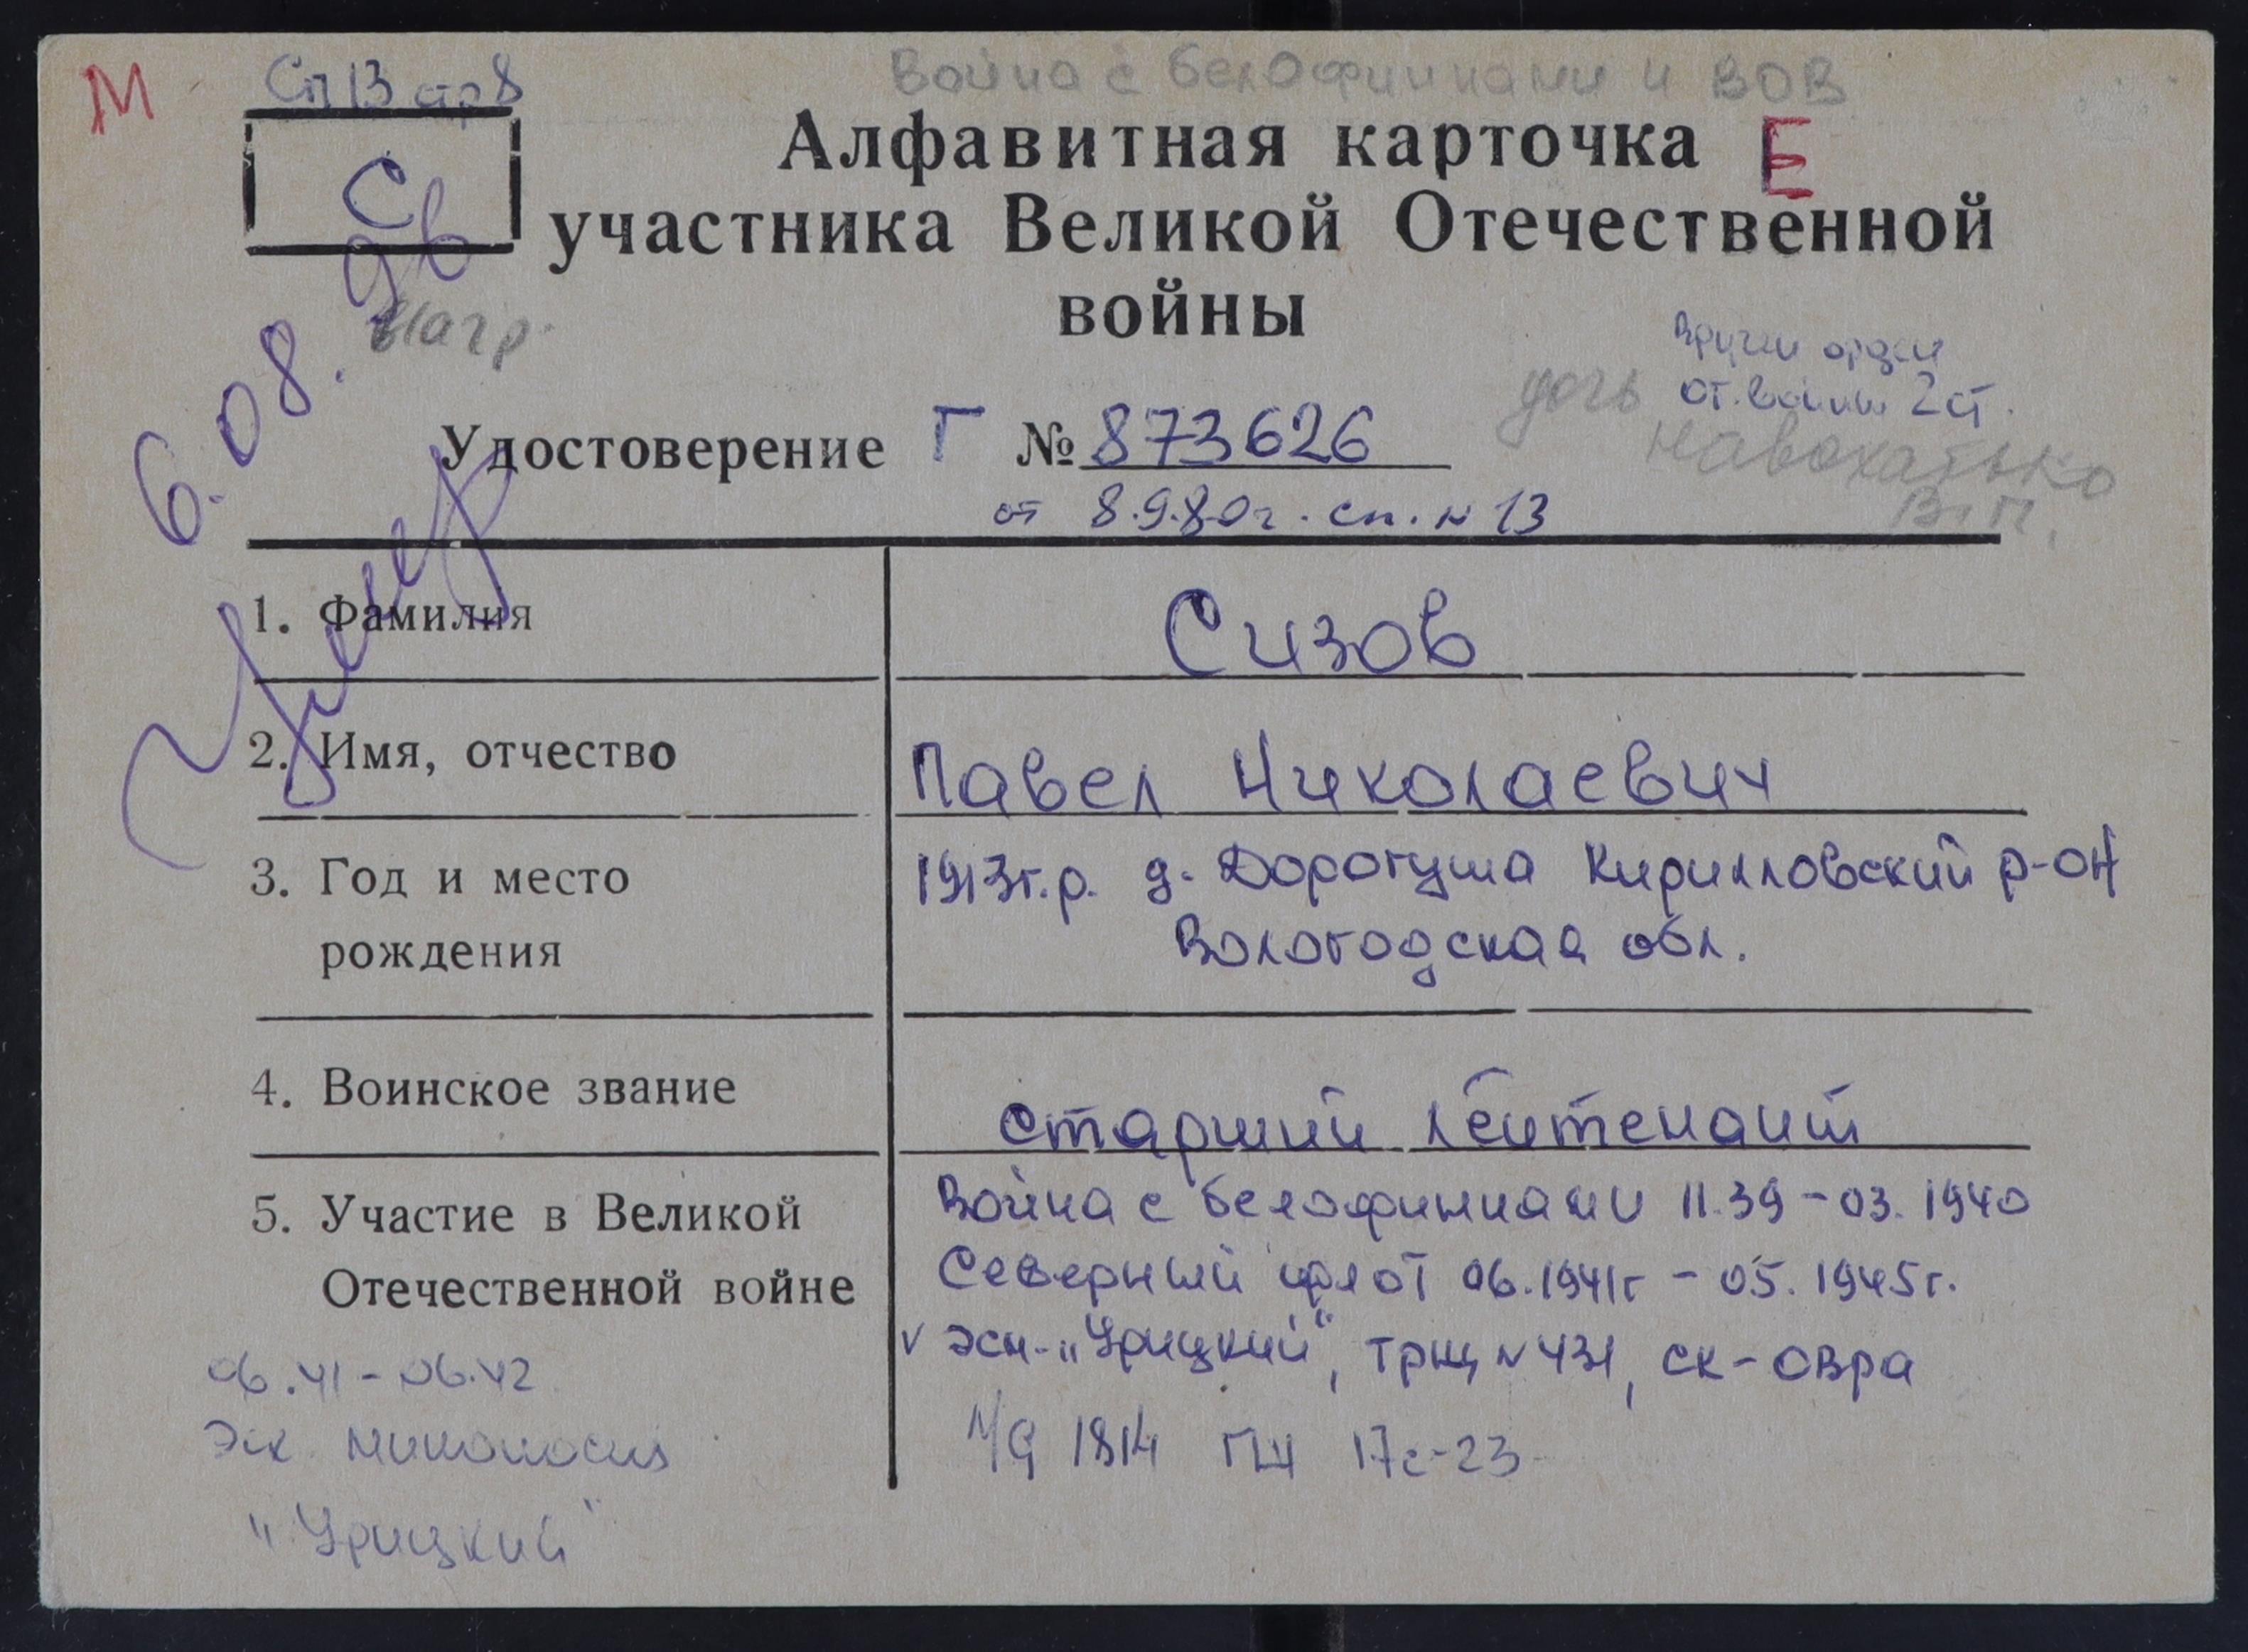 М
Сп 13 стр 8
Война с белофиннами и ВОВ
С
Алфавитная карточка Е
участника Великой Отечественной
войны
6.08.96
Умер
Нагр.
Вручен орден
От. войны 2 ст.
дочь
Навохатько
В.П.
Удостоверение Г № 873626
от 8.9.80г. сп. N 13
1. Фамилия
Сизов
2. Имя, отчество
Павел Николаевич
3. Год и место
рождения
1913г.р. д. Дорогуша Кирилловский р-он
Вологодская обл.
4. Воинское звание
старший лейтенант
5. Участие в Великой
Отечественной войне
Война с белофиннами 11.39 - 03.1940
Северный флот 06.1941г - 05.1945г.
v эсм. „Урицкий", трщ N 431, ск - ОВРа
1814 ПШ 17с-23
06.41 - 06.42
Эск миноносец
„Урицкий"